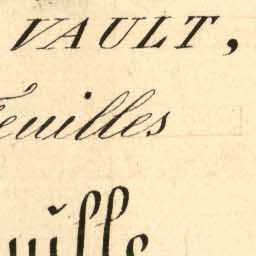 VAULT,
Feuilles
uille